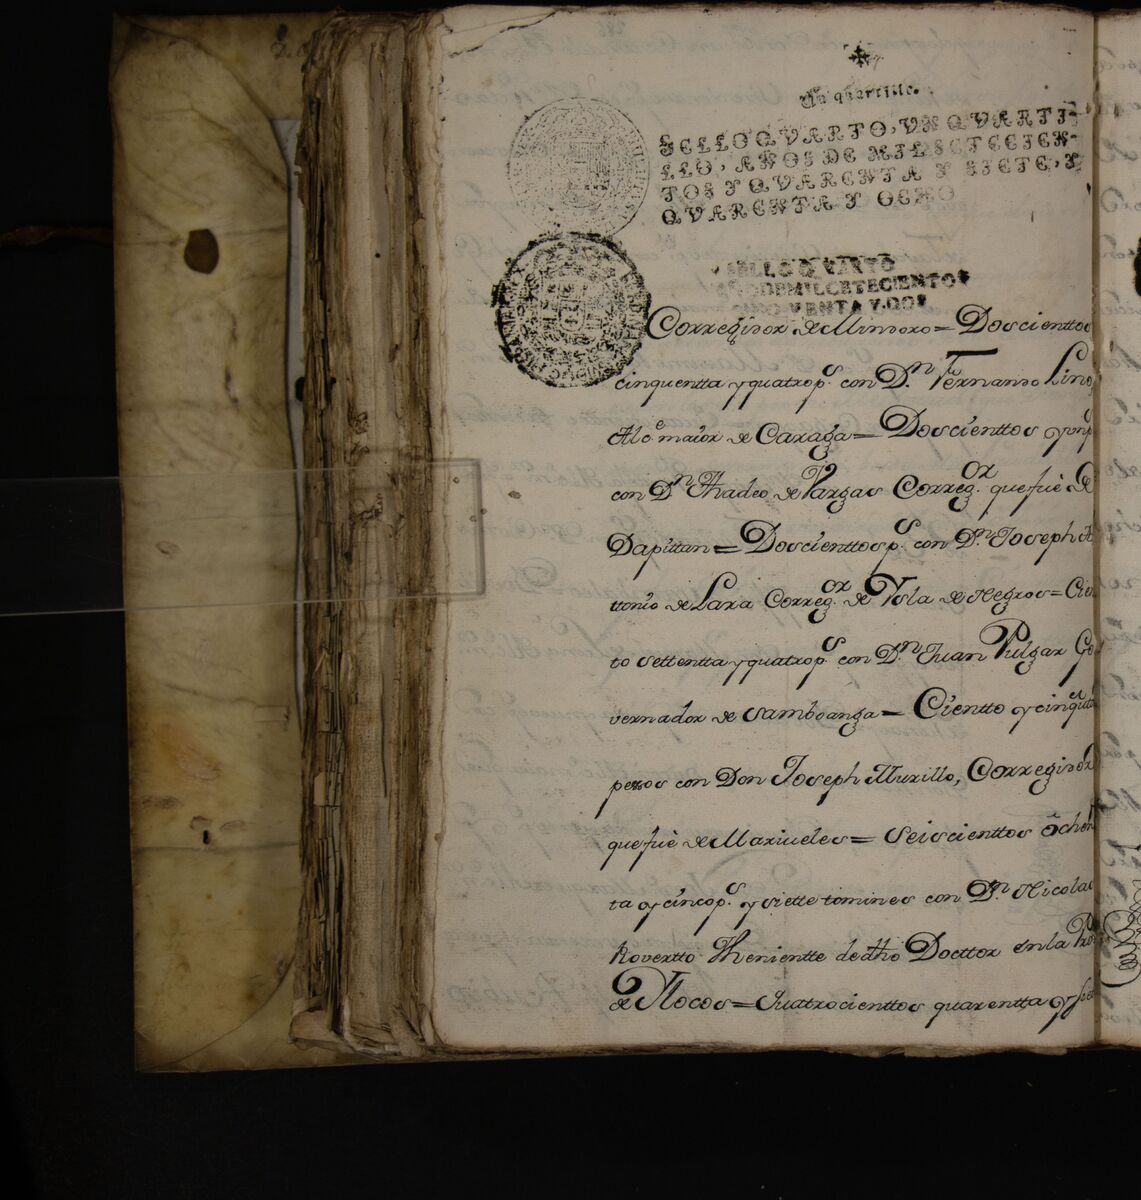 Un quartillo.
SELLO QVARTO, VN QVARTI-
LLO, AÑOS DE MIL SETECIEN-
TOS Y QVARENTA Y SIETE, Y
QVARENTA Y OCHO
SELLO QVARTO
AÑO DE MIL CETECIENTOS
CINQVENTA Y DOS
Corregidor de Mindoro = Doscienttos
cinquentta y quatro p.s con D.n Fernando Lino
Alc.e maior de Caraga = Doscienttos y
con D.n Thadeo de Vargas Correg.or que fuè de
Dapittan = Doscienttos p.s con D.n Joseph A
ttonio de Lara Correg.or de Ysla de Negros = Cien
to settentta y quatro p.s con D.n Juan Pulgar Go
vernador de Samboanga = Cientto y cinqu
pesos con Don Joseph Murillo, Corregidor
que fuè de Mariveles = Seiscienttos ochen
ta y cinco p.s y siette tomines con D.n Nicolas
Rovertto Thenientte de dho Docttor en la Pro
de Ylocos = Quatrocienttos quarentta y sie